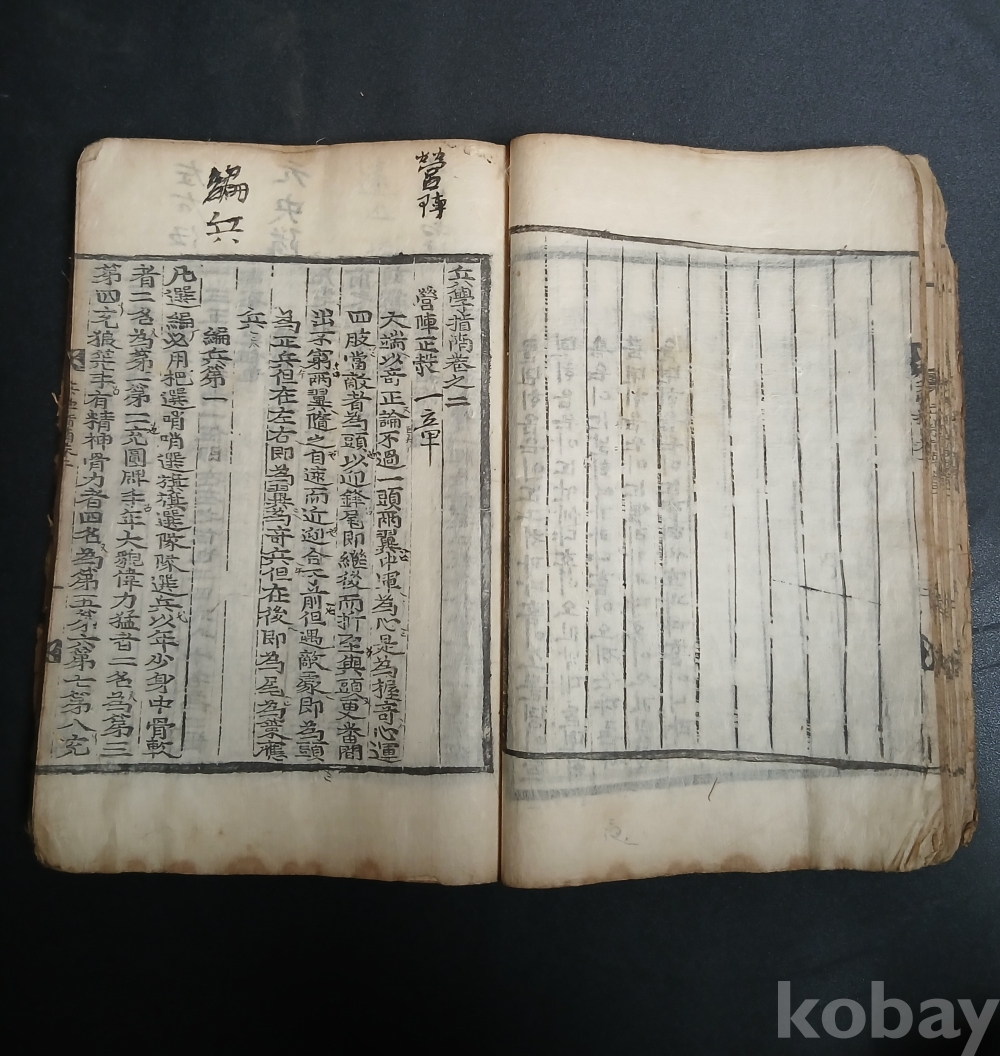 營陣
編兵
兵學指南卷之二
營陣正彀 一立甲
大端以奇正論不過一頭兩翼中軍為心是為握奇心運
四肢當敵者為頭以迎鋒尾即繼後而打至與頭更番間
出不窮兩翼隨之自遠而近迎合下前但遇敵處即為頭
為正兵但在左右即為翼為奇兵但在後即為尾為策應
兵
編兵第一
凡選編必用把選哨哨選旗旗選隊隊選兵以年少身中骨軟
者二名為第一第二充圓牌手年大貌偉力猛者二名為第三
第四充狼筅手有精神骨力者四名為第五第六第七第八充
kobay